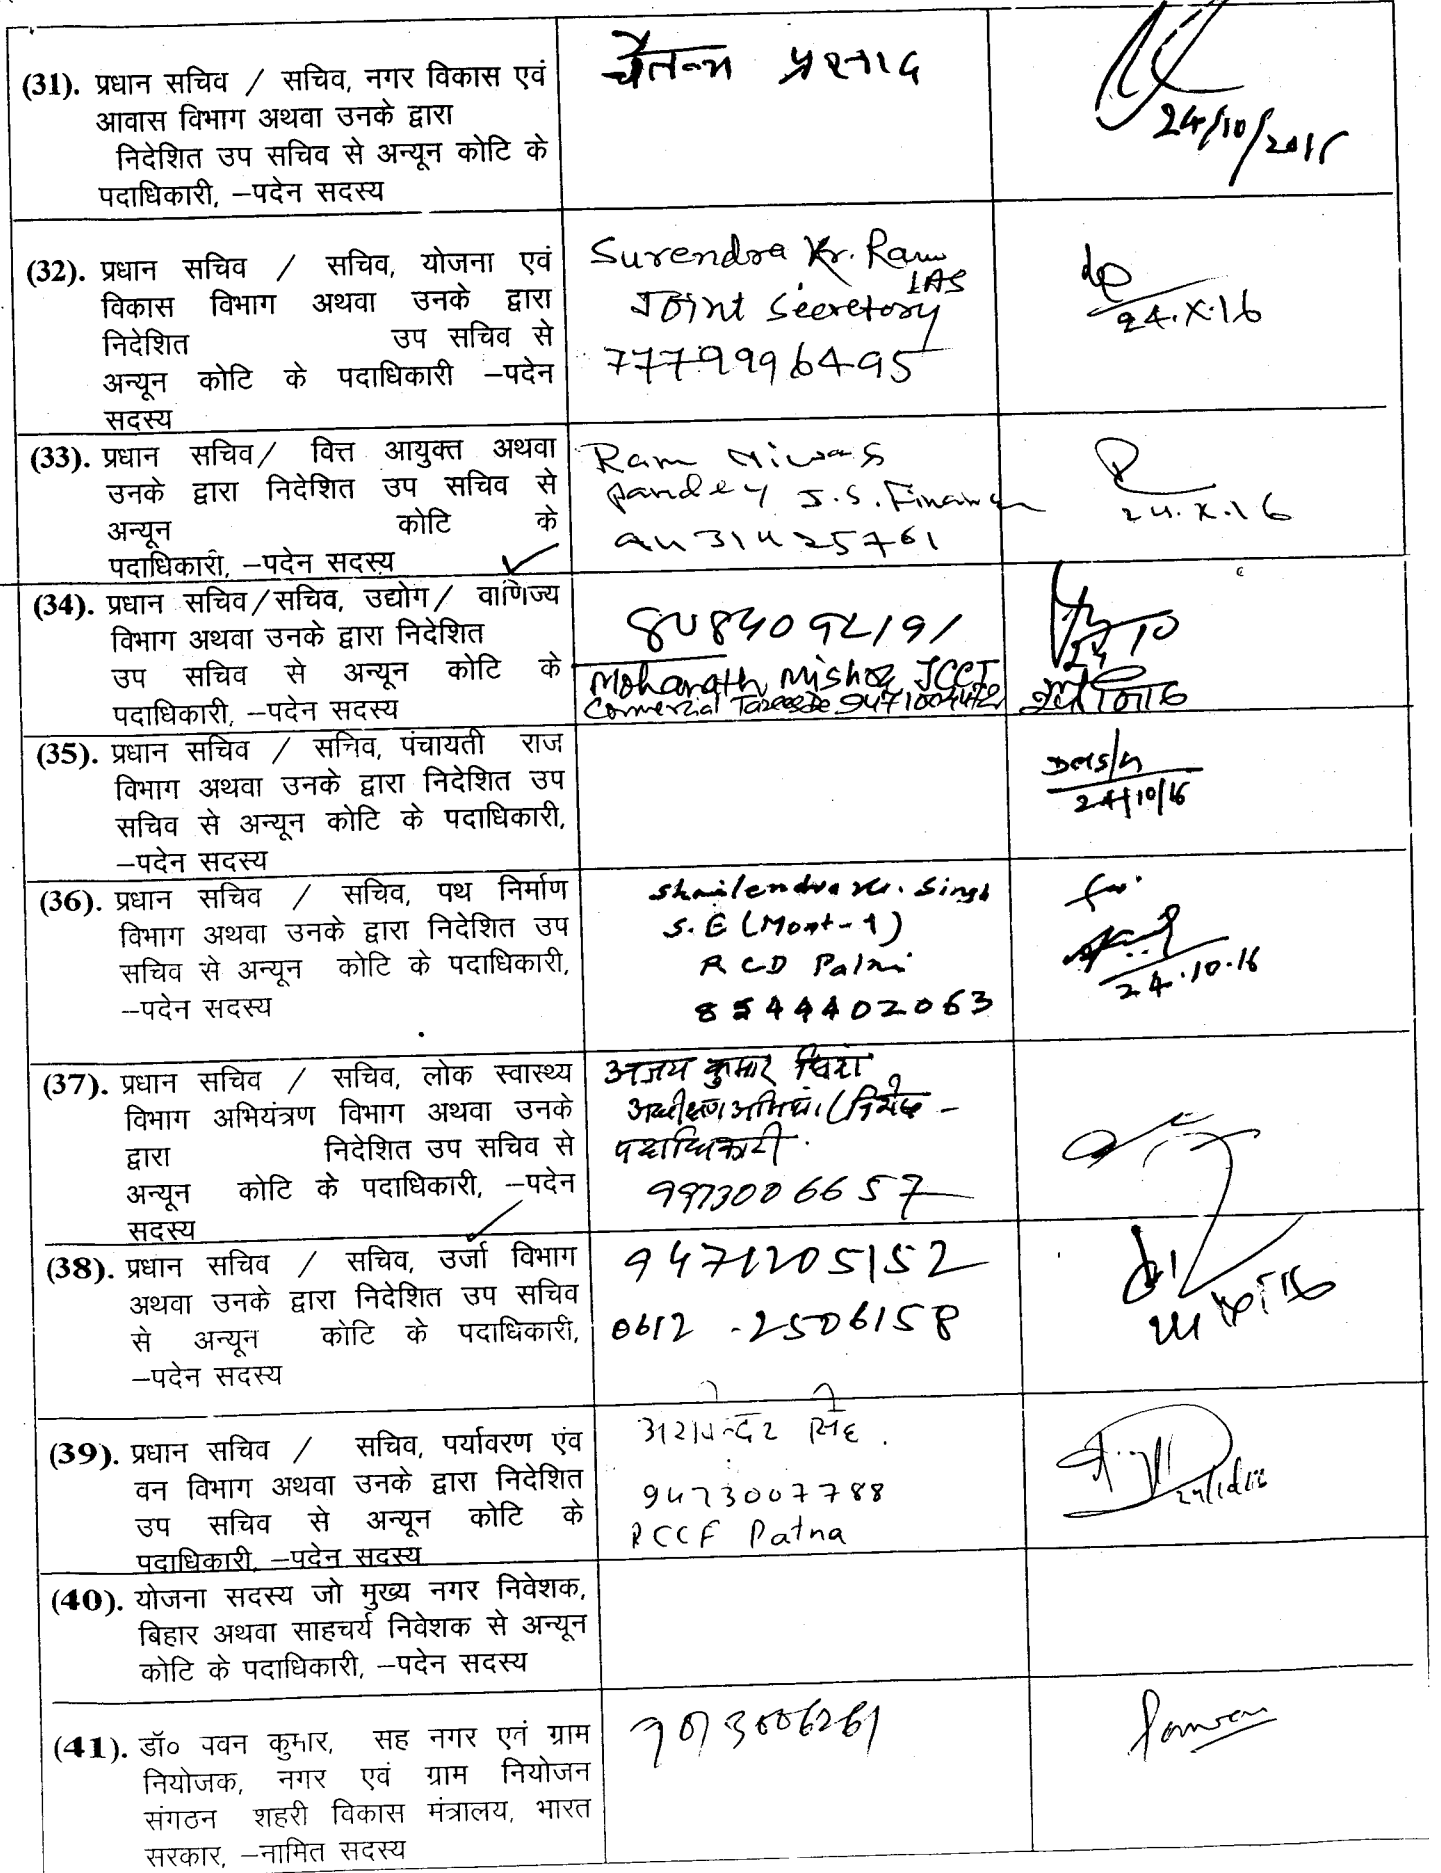 (31). प्रधान सचिव / सचिव, नगर विकास एवं
आवास विभाग अथवा उनके द्वारा
निदेशित उप सचिव से अन्यून कोटि के
पदाधिकारी, –पदेन सदस्य
चैतन्य प्रसाद
24/10/2016
(32). प्रधान सचिव / सचिव, योजना एवं
विकास विभाग अथवा उनके द्वारा
निदेशित उप सचिव से
अन्यून कोटि के पदाधिकारी –पदेन
सदस्य
Surendra Kr. Ram
IAS
Joint Secretory
7779996495
24.X.16
(33). प्रधान सचिव/ वित्त आयुक्त अथवा
उनके द्वारा निदेशित उप सचिव से
अन्यून कोटि के
पदाधिकारी, –पदेन सदस्य
Ram Niwas
Pandey J.S. Finance
9431425761
24.X.16
(34). प्रधान सचिव/सचिव, उद्योग/ वाणिज्य
विभाग अथवा उनके द्वारा निदेशित
उप सचिव से अन्यून कोटि के
पदाधिकारी, –पदेन सदस्य
Mishra JCCT
24/10
(35). प्रधान सचिव / सचिव, पंचायती राज
विभाग अथवा उनके द्वारा निदेशित उप
सचिव से अन्यून कोटि के पदाधिकारी,
–पदेन सदस्य
24/10/16
(36). प्रधान सचिव / सचिव, पथ निर्माण
विभाग अथवा उनके द्वारा निदेशित उप
सचिव से अन्यून कोटि के पदाधिकारी,
–पदेन सदस्य
Shailendra Kr. Singh
S.E (Mont-1)
RCD Patna
8544402063
24.10.16
(37). प्रधान सचिव / सचिव, लोक स्वास्थ्य
विभाग अभियंत्रण विभाग अथवा उनके
द्वारा निदेशित उप सचिव से
अन्यून कोटि के पदाधिकारी, –पदेन
सदस्य
अजय कुमार
पदाधिकारी.
9973006657
(38). प्रधान सचिव / सचिव, उर्जा विभाग
अथवा उनके द्वारा निदेशित उप सचिव
से अन्यून कोटि के पदाधिकारी,
–पदेन सदस्य
9471205152
0612 - 2506158
(39). प्रधान सचिव / सचिव, पर्यावरण एंव
वन विभाग अथवा उनके द्वारा निदेशित
उप सचिव से अन्यून कोटि के
पदाधिकारी, –पदेन सदस्य
सिंह.
9473007788
PCCF Patna
(40). योजना सदस्य जो मुख्य नगर निवेशक,
बिहार अथवा साहचर्य निवेशक से अन्यून
कोटि के पदाधिकारी, –पदेन सदस्य
(41). डॉ० पवन कुमार, सह नगर एवं ग्राम
नियोजक, नगर एवं ग्राम नियोजन
संगठन शहरी विकास मंत्रालय, भारत
सरकार, –नामित सदस्य